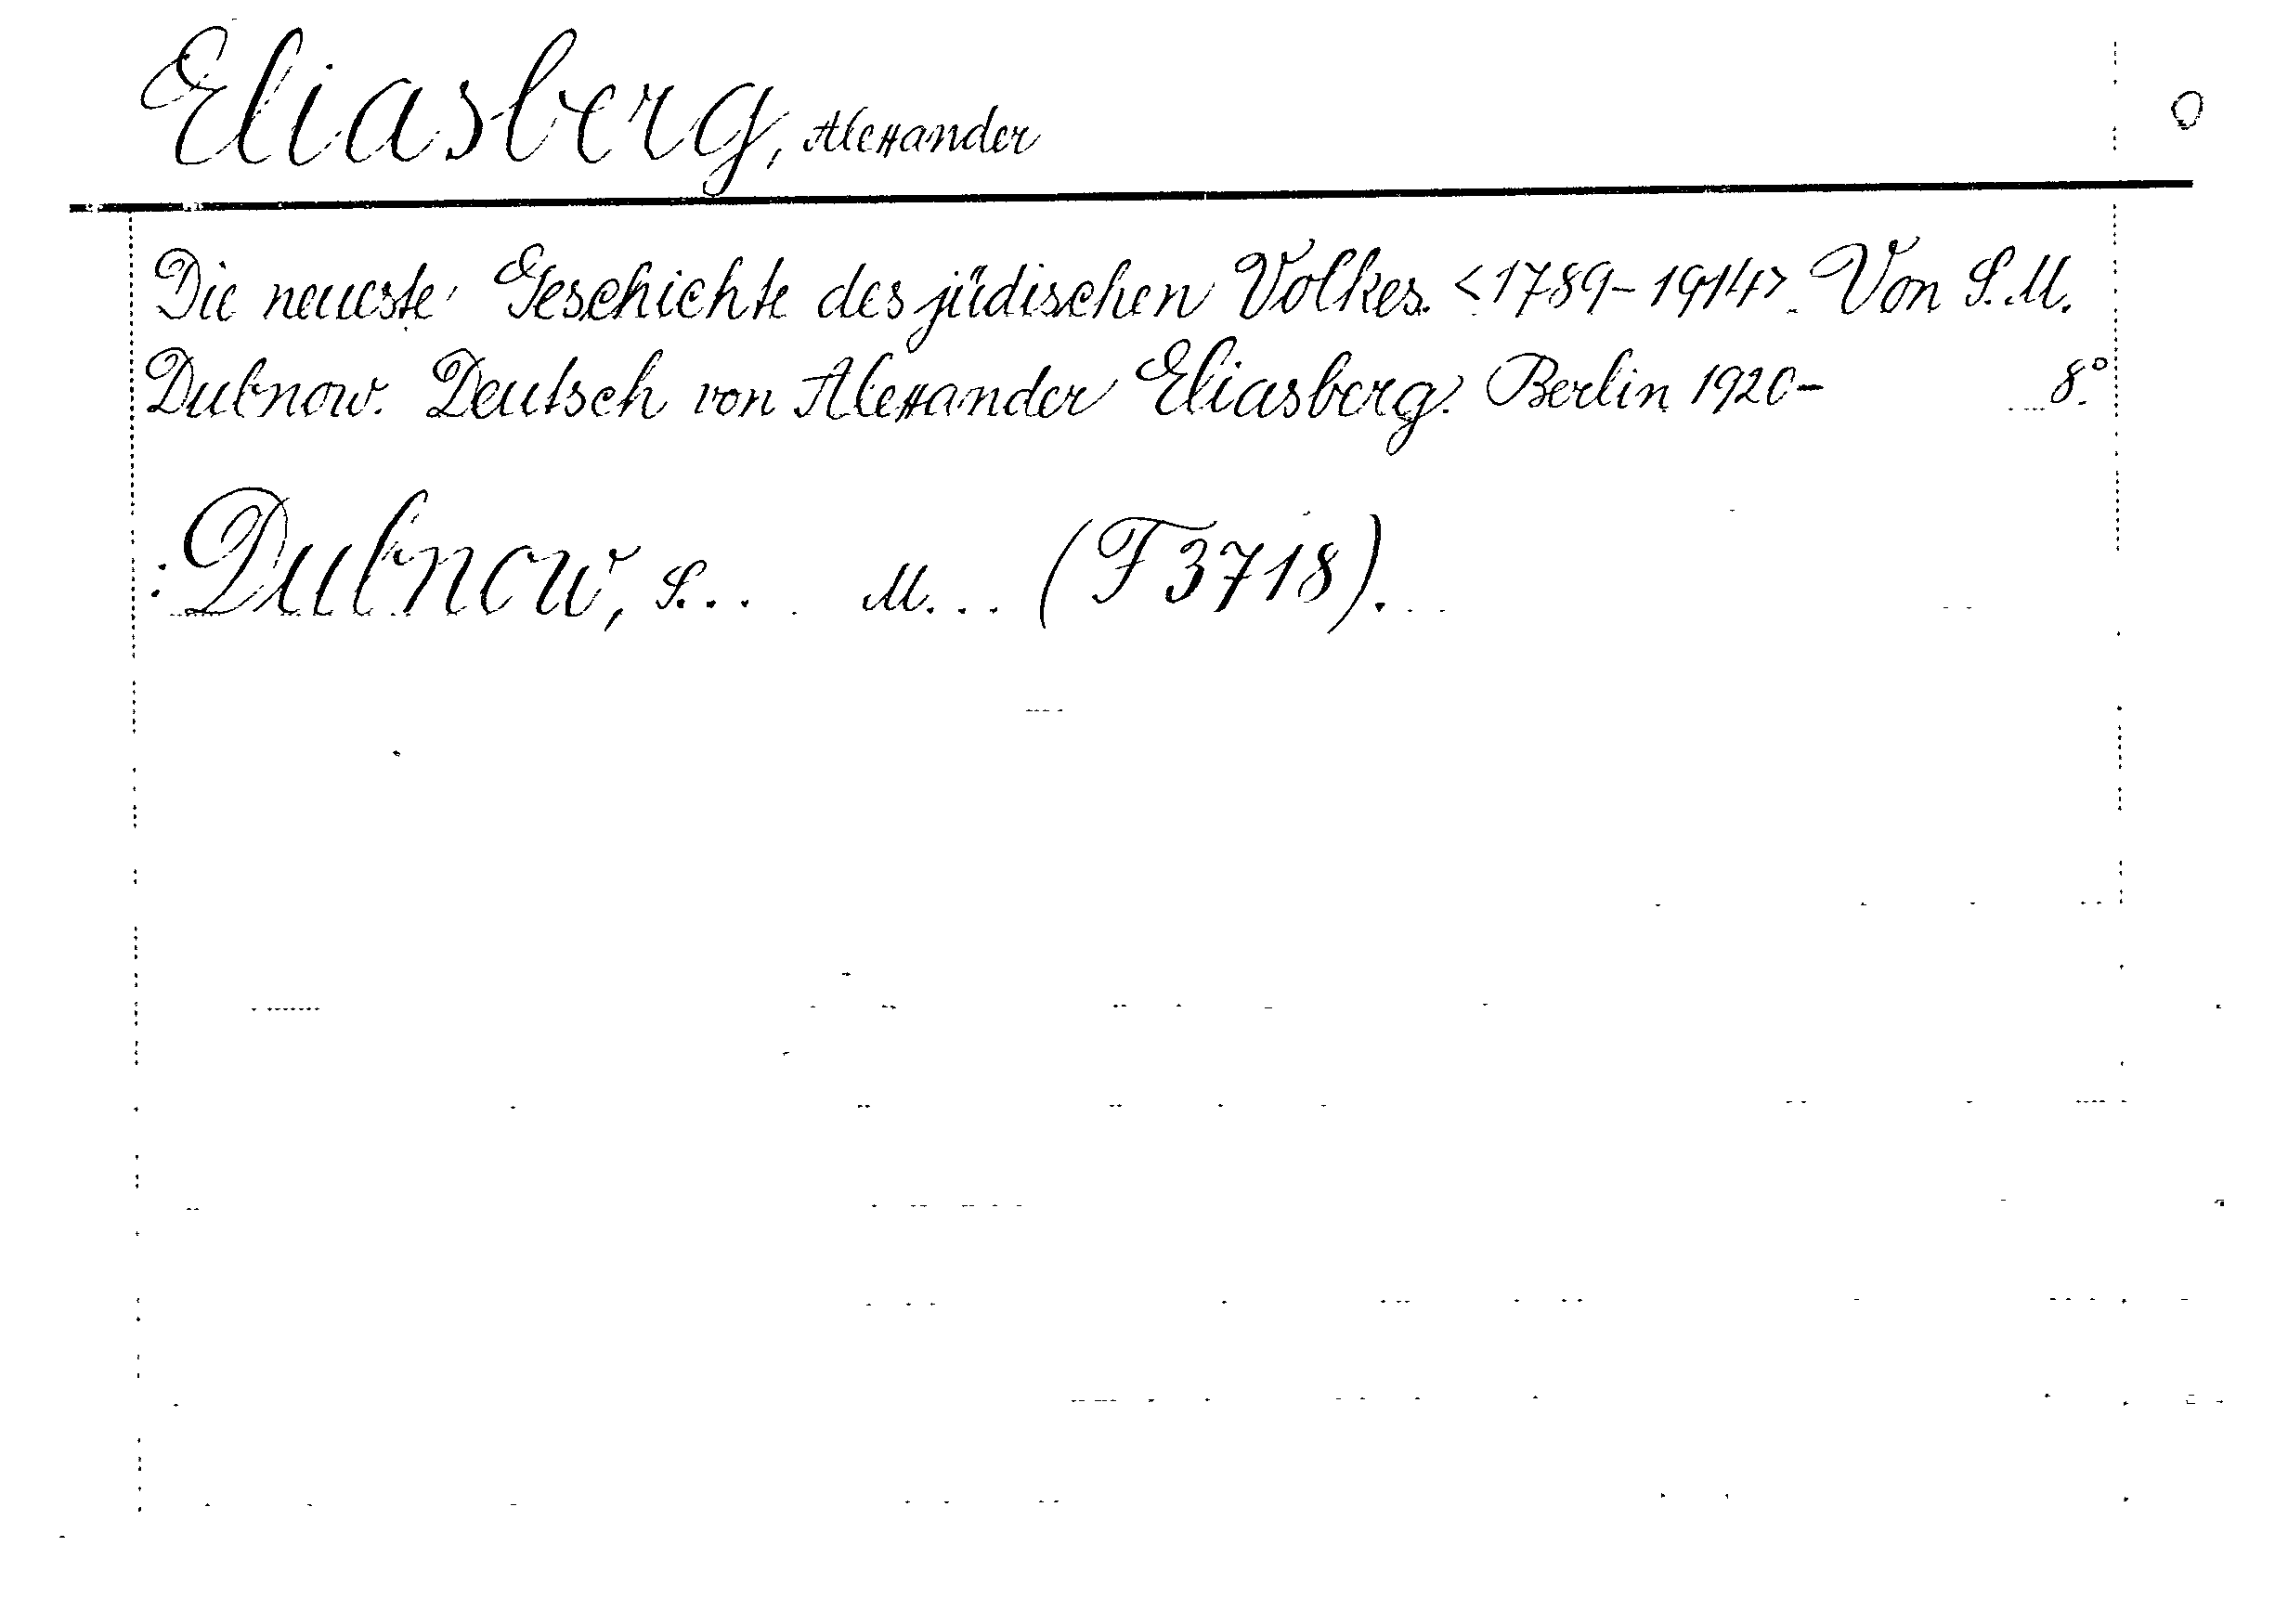 Eliasberg, Alexander
Die neueste Geschichte des jüdischen Volkes. <1789-1914>. Von S. M.
Dubnow. Deutsch von Alexander Eliasberg. Berlin 1920- 8.°
: Dubnow, S... M... (F 3718).